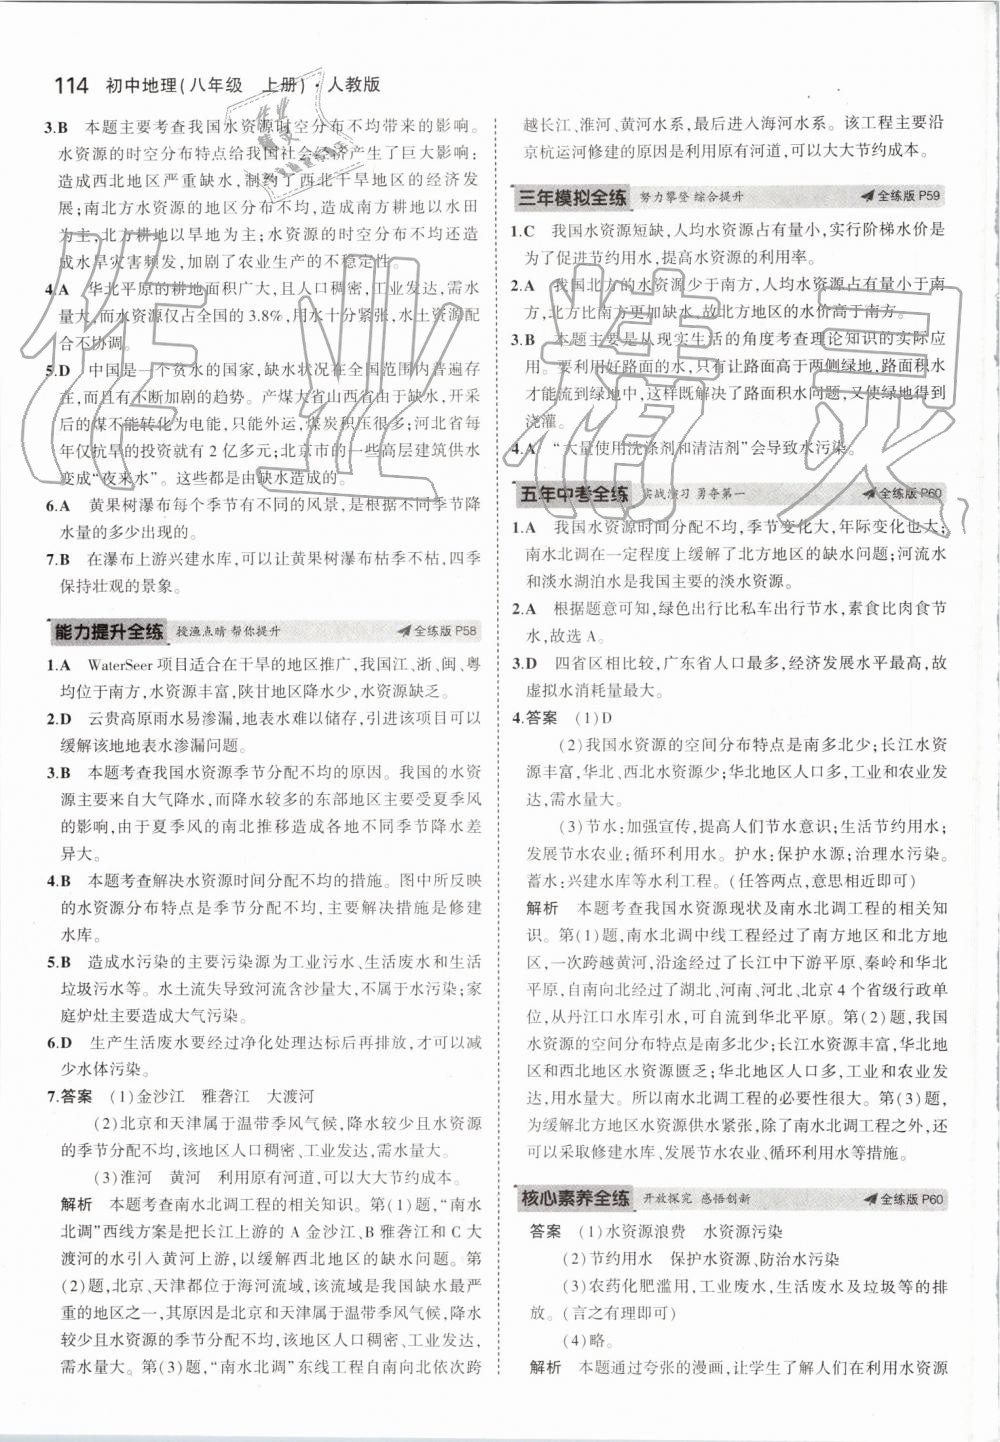 114 初中地理(八年级 上册)·人教版
3.B 本题主要考查我国水资源时空分布不均带来的影响。
水资源的时空分布特点给我国社会经济产生了巨大影响:
造成西北地区严重缺水,制约了西北干旱地区的经济发
展;南北方水资源的地区分布不均,造成南方耕地以水田
为主,北方耕地以旱地为主;水资源的时空分布不均还造
成水旱灾害频发,加剧了农业生产的不稳定性。
4.A 华北平原的耕地面积广大,且人口稠密,工业发达,需水
量大,而水资源仅占全国的3.8%,用水十分紧张,水土资源配
合不协调。
5.D 中国是一个贫水的国家,缺水状况在全国范围内普遍存
在,而且有不断加剧的趋势。产煤大省山西省由于缺水,开采
后的煤不能转化为电力,只能外运,煤炭积压很多;河北省每
年仅抗旱的投资就有2亿多元;北京市的一些高层建筑供水
变成“夜来水”。这些都是由缺水造成的。
6.A 黄果树瀑布每个季节有不同的风景,是根据季节降
水量的多少出现的。
7.B 在瀑布上游兴建水库,可以让黄果树瀑布枯季不枯,四季
保持壮观的景象。
能力提升全练 授渔点睛 帮你提升 全练版 P58
1.A WaterSeer项目适合在干旱的地区推广,我国江、浙、闽、粤
均位于南方,水资源丰富,陕甘地区降水少,水资源缺乏。
2.D 云贵高原雨水易渗漏,地表水难以储存,引进该项目可以
缓解该地地表水渗漏问题。
3.B 本题考查我国水资源季节分配不均的原因。我国的水资
源主要来自大气降水,而降水较多的东部地区主要受夏季风
的影响,由于夏季风的南北推移造成各地不同季节降水差
异大。
4.B 本题考查解决水资源时间分配不均的措施。图中所反映
的水资源分布特点是季节分配不均,主要解决措施是修建
水库。
5.B 造成水污染的主要污染源为工业污水、生活废水和生活
垃圾污水等。水土流失导致河流含沙量大,不属于水污染;家
庭炉灶主要造成大气污染。
6.D 生产生活废水要经过净化处理达标后再排放,才可以减
少水体污染。
7.答案 (1)金沙江 雅砻江 大渡河
(2)北京和天津属于温带季风气候,降水较少且水资源
的季节分配不均,该地区人口稠密,工业发达,需水量大。
(3)淮河 黄河 利用原有河道,可以大大节约成本。
解析 本题考查南水北调工程的相关知识。第(1)题,“南水
北调”西线方案是把长江上游的A金沙江、B雅砻江和C大
渡河的水引入黄河上游,以缓解西北地区的缺水问题。第
(2)题,北京、天津都位于海河流域,该流域是我国缺水最严
重的地区之一,其原因是北京和天津属于温带季风气候,降水
较少且水资源的季节分配不均,该地区人口稠密、工业发达,
需水量大。第(3)题,“南水北调”东线工程自南向北依次跨
越长江、淮河、黄河水系,最后进入海河水系。该工程主要沿
京杭运河修建的原因是利用原有河道,可以大大节约成本。
三年模拟全练 努力攀登 综合提升 全练版 P59
1.C 我国水资源短缺,人均水资源占有量小,实行阶梯水价是
为了促进节约用水,提高水资源的利用率。
2.A 我国北方的水资源少于南方,人均水资源占有量小于南
方,北方比南方更加缺水,故北方地区的水价高于南方。
3.B 本题主要是从现实生活的角度考查理论知识的实际应
用。要利用好路面的水,只有让路面高于两侧绿地,路面积水
才能流到绿地中,这样既解决了路面积水问题,又使绿地得到
浇灌。
4.A “大量使用洗涤剂和清洁剂”会导致水污染。
五年中考全练 实战演习 勇夺第一 全练版 P60
1.A 我国水资源时间分配不均,季节变化大,年际变化也大;
南水北调在一定程度上缓解了北方地区的缺水问题;河流水
和淡水湖泊水是我国主要的淡水资源。
2.A 根据题意可知,绿色出行比私车出行节水,素食比肉食节
水,故选A。
3.D 四省区相比较,广东省人口最多,经济发展水平最高,故
虚拟水消耗量最大。
4.答案 (1)D
(2)我国水资源的空间分布特点是南多北少;长江水资
源丰富,华北、西北水资源少;华北地区人口多,工业和农业发
达,需水量大。
(3)节水:加强宣传,提高人们节水意识;生活节约用水;
发展节水农业;循环利用水。护水:保护水源;治理水污染。
蓄水:兴建水库等水利工程。(任答两点,意思相近即可)
解析 本题考查我国水资源现状及南水北调工程的相关知
识。第(1)题,南水北调中线工程经过了南方地区和北方地
区,一次跨越黄河,沿途经过了长江中下游平原、秦岭和华北
平原,自南向北经过了湖北、河南、河北、北京4个省级行政单
位,从丹江口水库引水,可自流到华北平原。第(2)题,我国
水资源的空间分布特点是南多北少;长江水资源丰富,华北地
区和西北地区水资源匮乏;华北地区人口多,工农业发
达,用水量大。所以南水北调工程的必要性很大。第(3)题,
为缓解北方地区水资源供水紧张,除了南水北调工程之外,还
可以采取修建水库、发展节水农业、循环利用水等措施。
核心素养全练 开放探究 感悟创新 全练版 P60
答案 (1)水资源浪费 水资源污染
(2)节约用水 保护水资源,防治水污染
(3)农药化肥滥用,工业废水,生活废水及垃圾等的排
放。(言之有理即可)
(4)略。
解析 本题通过夸张的漫画,让学生了解人们在利用水资源
作业精灵